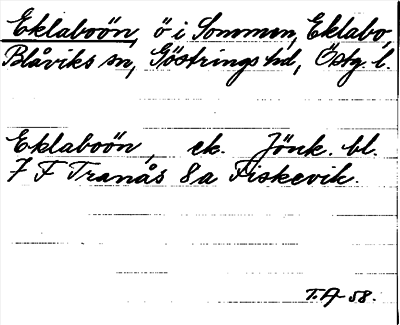 Eklaboön, ö i Sommen, Eklabo,
Blåviks sn, Göstrings hd, Östg. l.
Eklaboön, ek. Jönk. bl.
7 F Tranås 8a Fiskevik.
T.A 58.